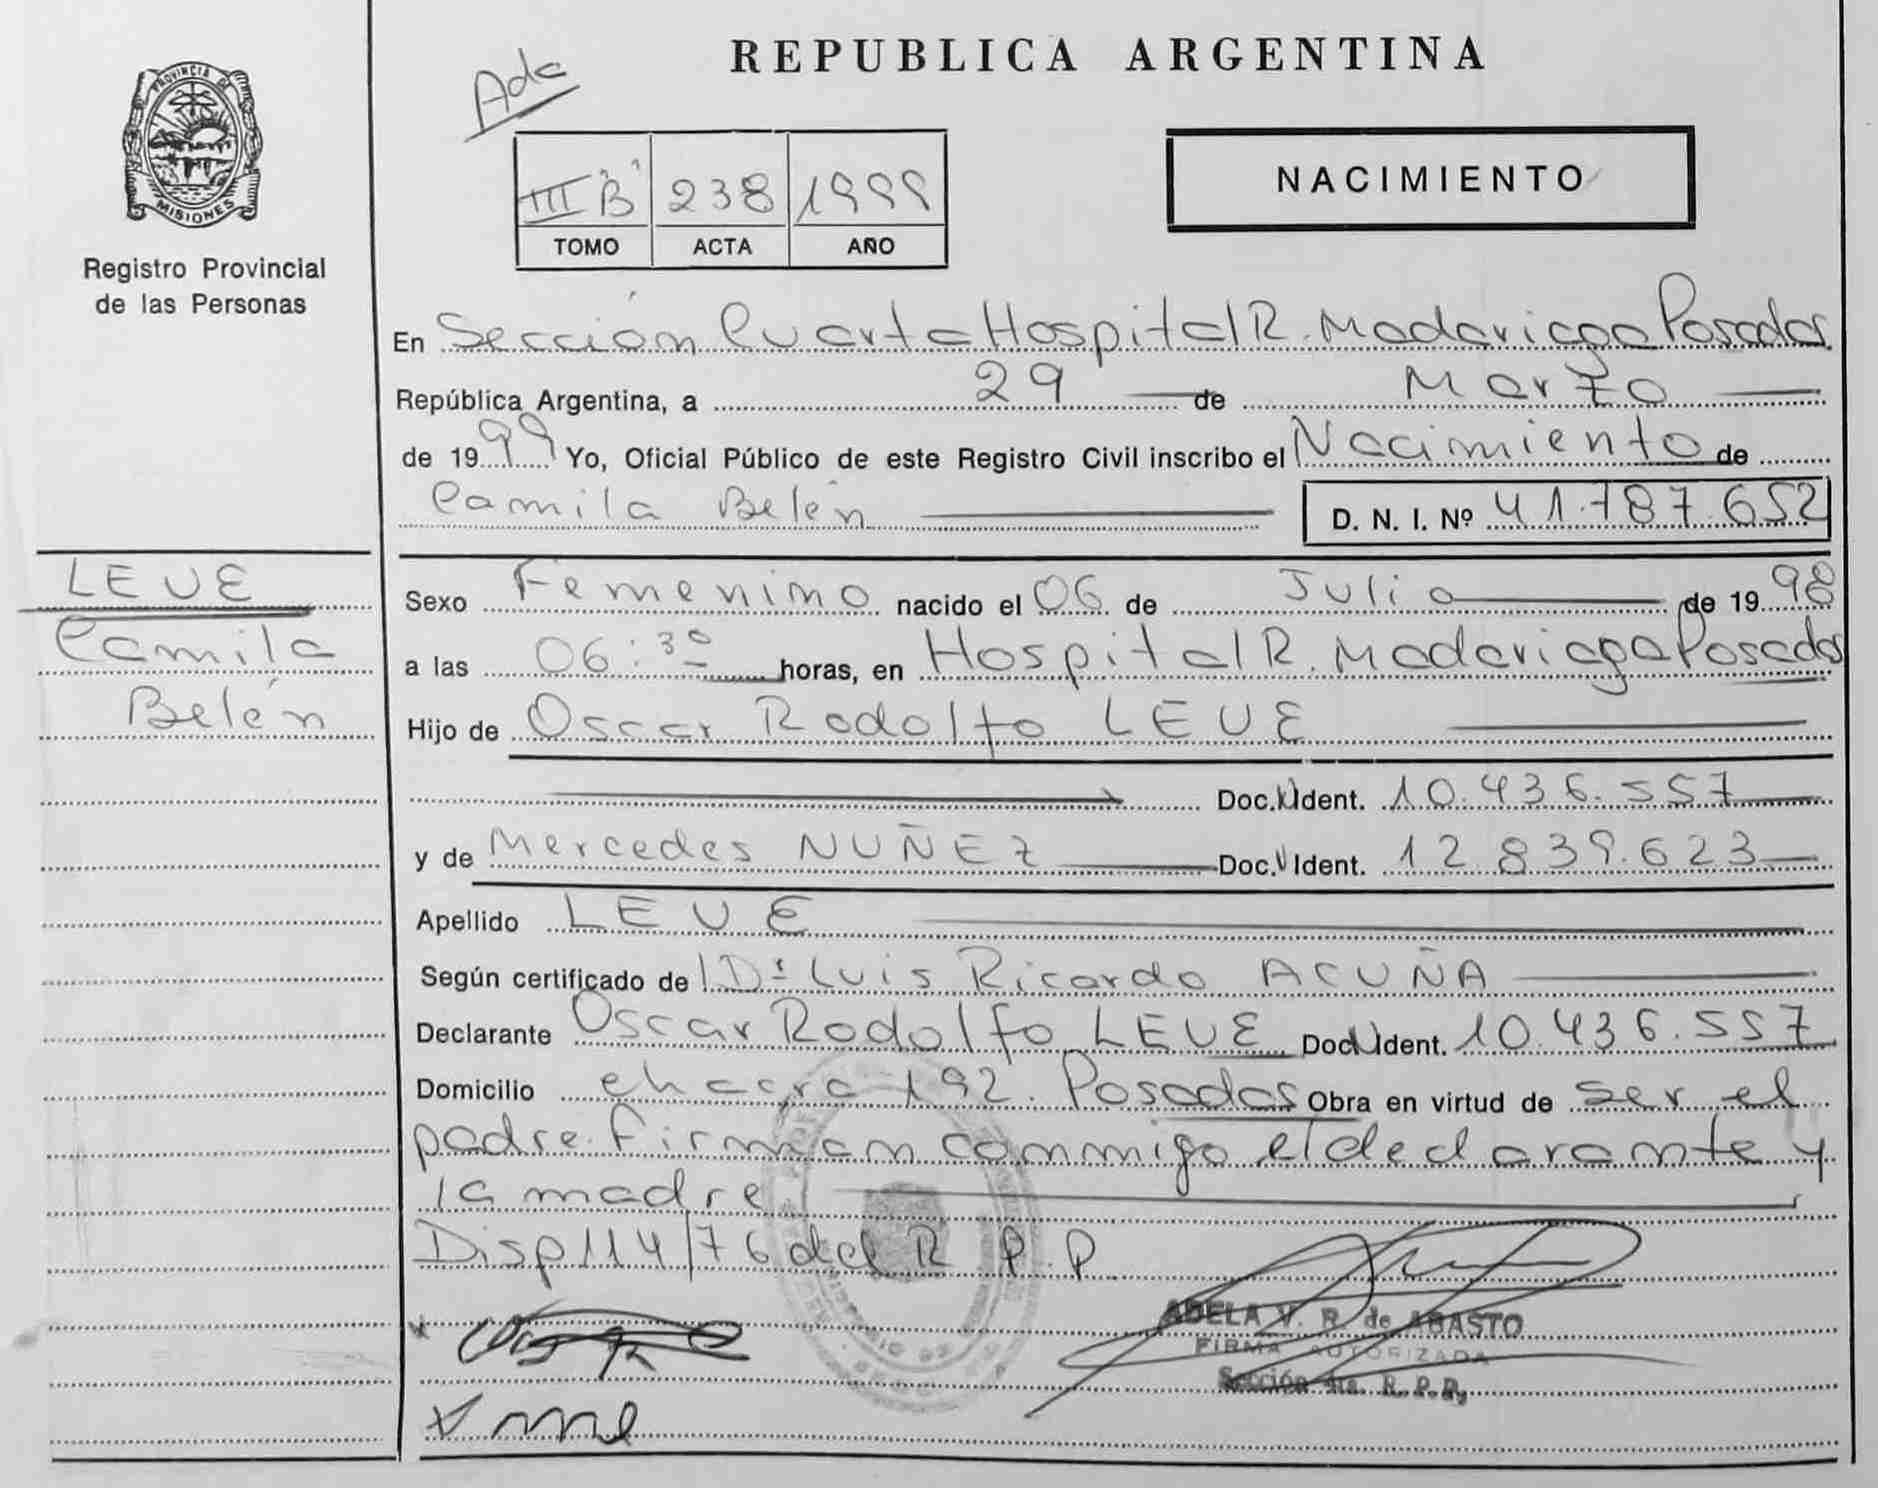 REPUBLICA ARGENTINA
Ada
PROVINCIA DE
MISIONES
Registro Provincial
de las Personas
III B 238 1999
TOMO ACTA AÑO
NACIMIENTO
En Sección Cuarta Hospital R. Madariaga Posadas
República Argentina, a 29 de Marzo
de 1999 Yo, Oficial Público de este Registro Civil inscribo el Nacimiento de
Camila Belén D. N. I. Nº 41.787.652
LEVE
Camila
Belén
Sexo Femenino nacido el 06 de Julio de 1998
a las 06:30 horas, en Hospital R. Madariaga Posadas
Hijo de Oscar Rodolfo LEVE
Doc. Ident. 10.436.557
y de Mercedes NUÑEZ Doc. Ident. 12.839.623
Apellido LEVE
Según certificado de Dr Luis Ricardo ACUÑA
Declarante Oscar Rodolfo LEVE Doc. Ident. 10.436.557
Domicilio chacra 192. Posadas Obra en virtud de ser el
padre. Firman conmigo el declarante y
la madre
Disp 114/76 del R P.P
ADELA V. R. de ABASTO
FIRMA AUTORIZADA
Sección 4ta. R. P. P.